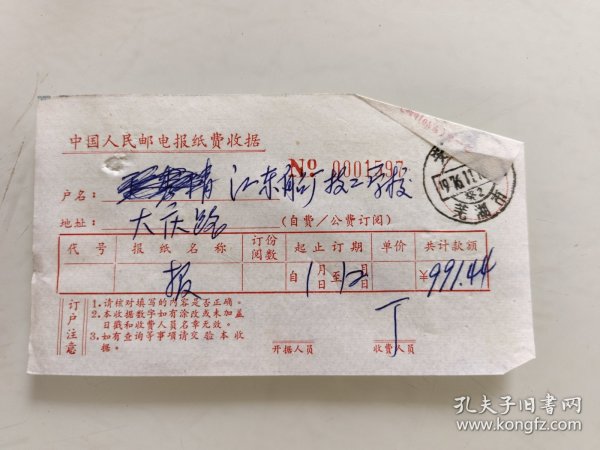 中国人民邮电报纸费收据
No 0001797
户名: 江东船厂技工学校
地址: 大庆路 (自费/公费订阅)
代号 报纸名称 订份阅数 起止订期 单价 共计款额
报 自1月日至12月日 ¥991.44
订户注意
1.请核对填写的内容是否正确。
2.本收据数字如有涂改或未加盖
日戳和收费人员名章无效。
3.如有查询等事项请交验本收
据。
开据人员 收费人员
丁
芜湖
孔夫子旧书网
www.kongfz.com